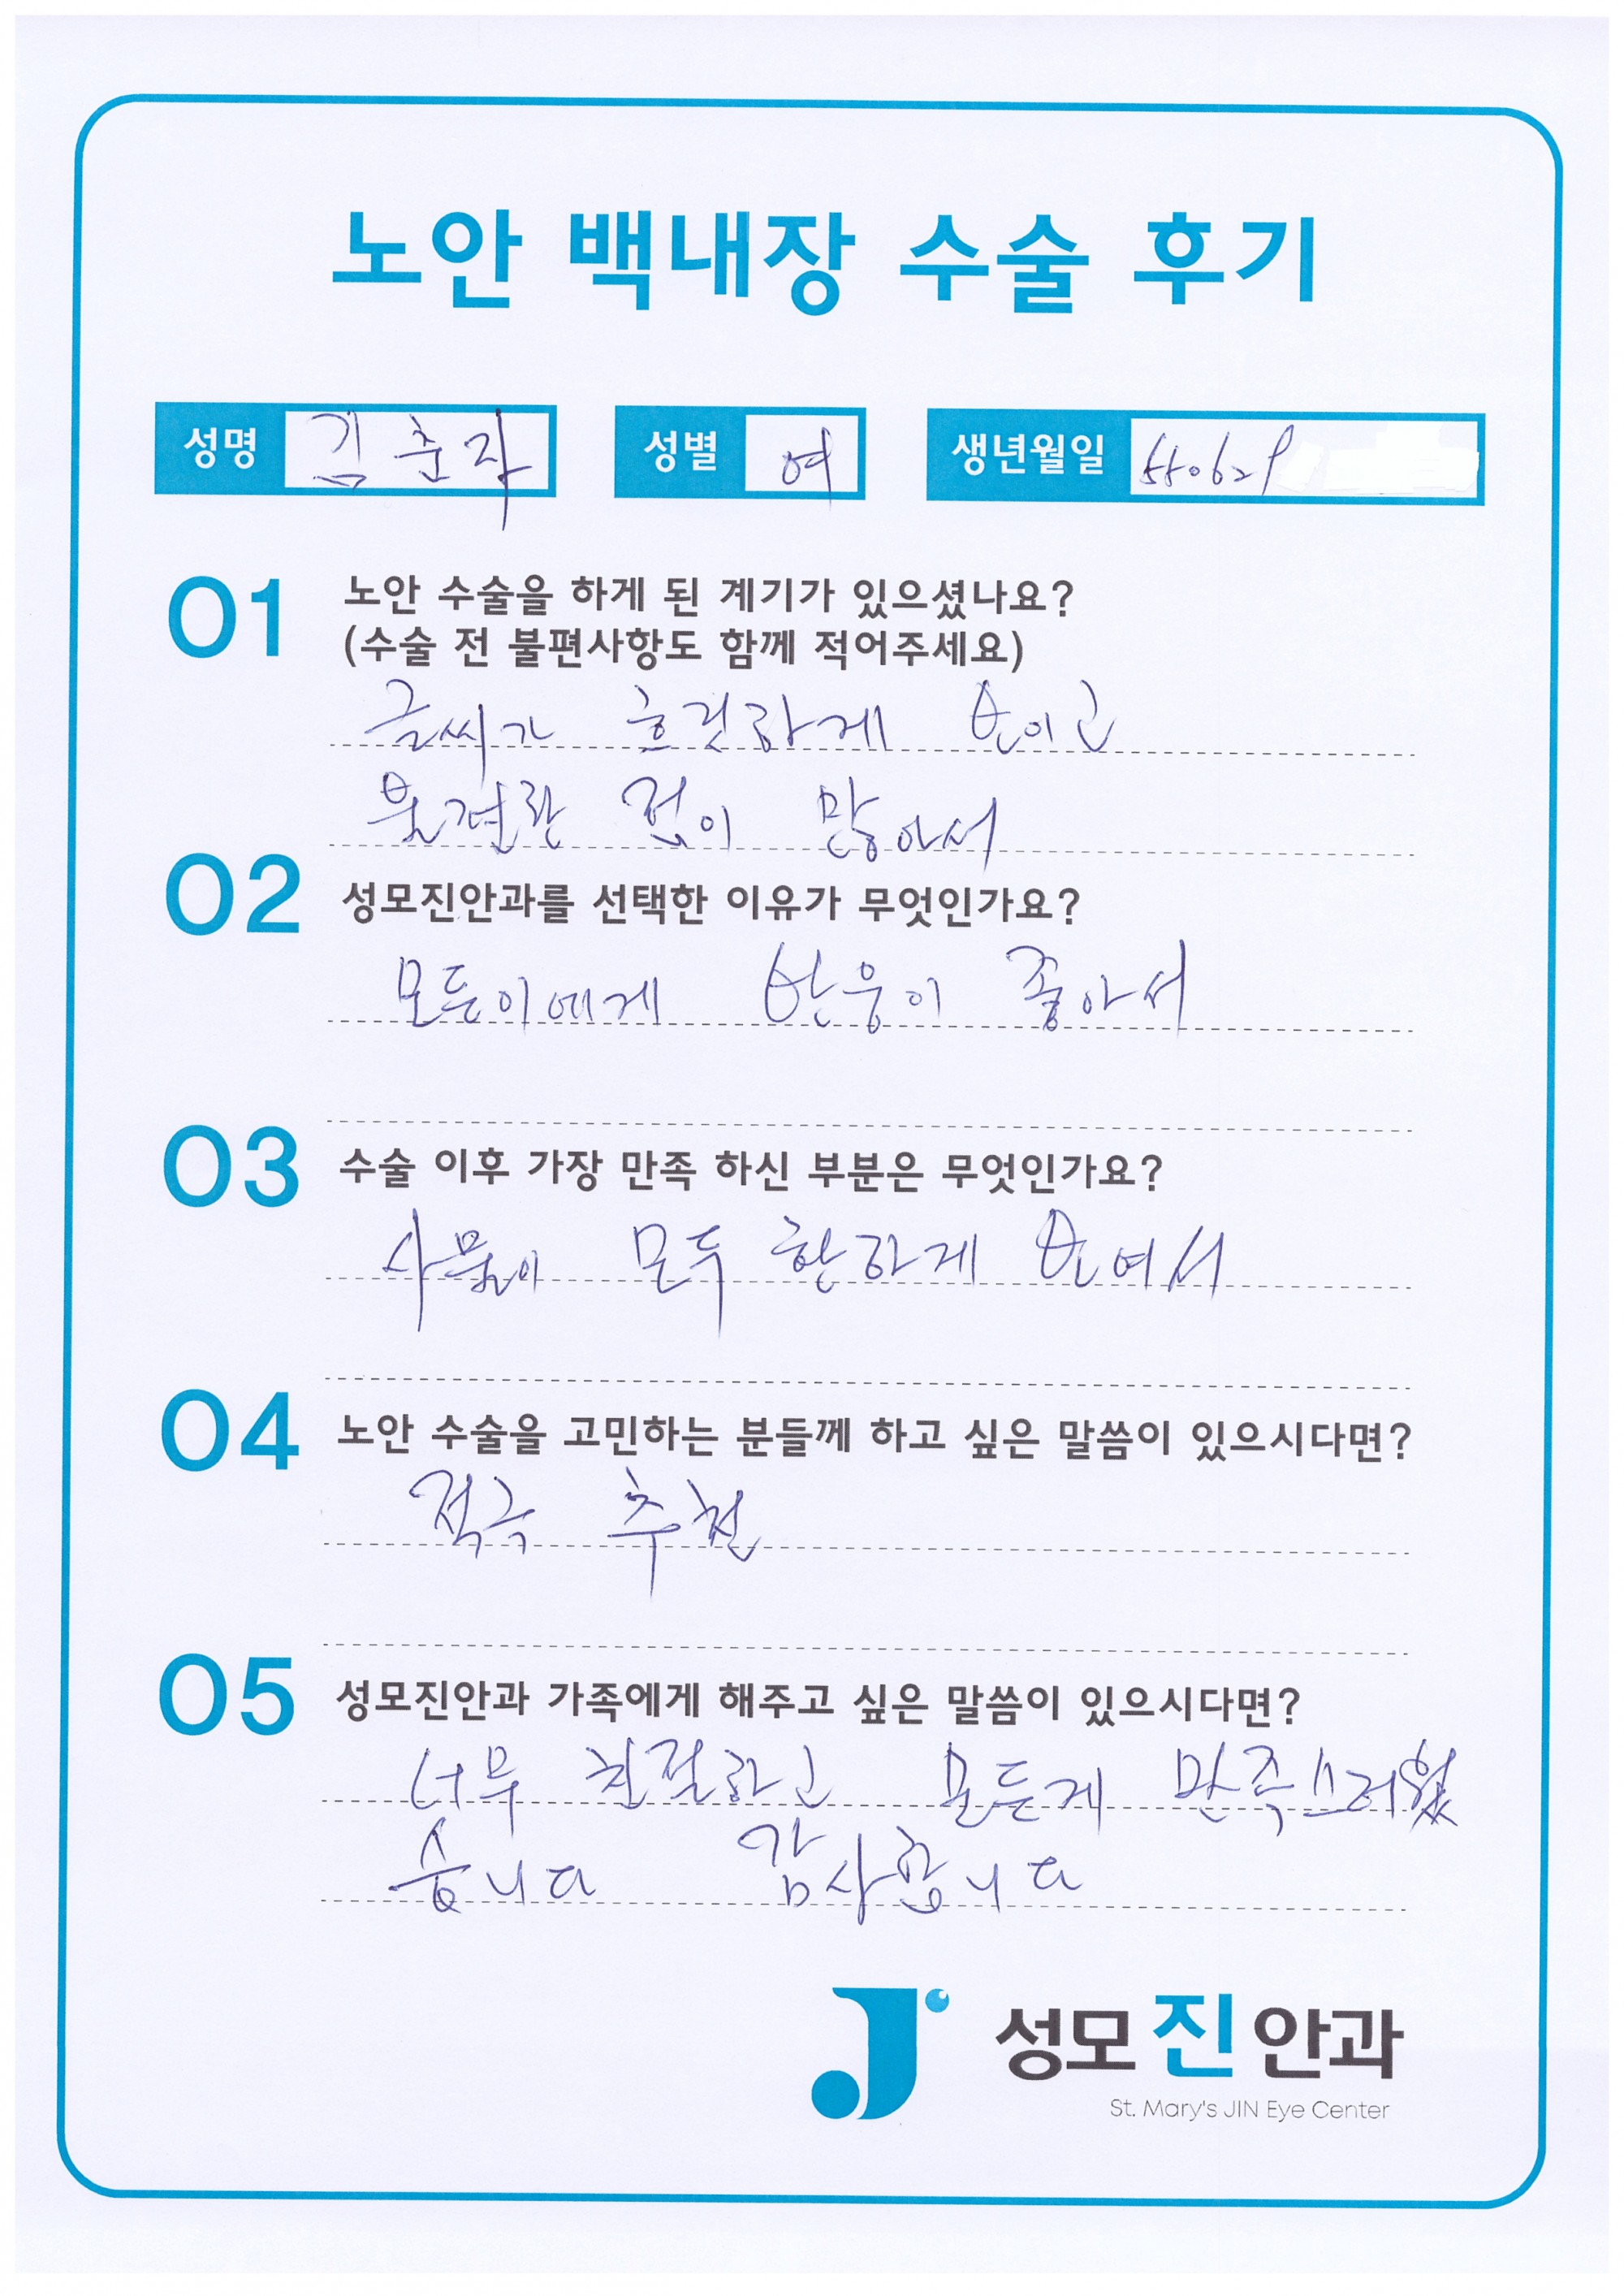 노안 백내장 수술 후기
성명 김춘자 성별 여 생년월일 550629
01 노안 수술을 하게 된 계기가 있으셨나요?
(수술 전 불편사항도 함께 적어주세요)
글씨가 흐릿하게 보이고
불편한 점이 많아서
02 성모진안과를 선택한 이유가 무엇인가요?
모든이에게 반응이 좋아서
03 수술 이후 가장 만족 하신 부분은 무엇인가요?
사물이 모두 환하게 보여서
04 노안 수술을 고민하는 분들께 하고 싶은 말씀이 있으시다면?
적극 추천
05 성모진안과 가족에게 해주고 싶은 말씀이 있으시다면?
너무 친절하고 모든게 만족스러웠
습니다 감사합니다
J 성모진안과
St. Mary's JIN Eye Center